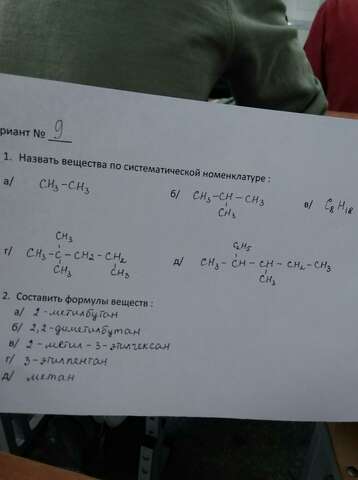 риант № 9
1. Назвать вещества по систематической номенклатуре :
а/ CH₃ – CH₃ б/ CH₃ – CH – CH₃ в/ C₈H₁₈
CH₃
CH₃ C₂H₅
г/ CH₃ – C – CH₂ – CH₂ д/ CH₃ – CH – CH – CH₂ – CH₃
CH₃ CH₃ CH₃
2. Составить формулы веществ :
а/ 2 - метилбутан
б/ 2,2 - диметилбутан
в/ 2 - метил - 3 - этилгексан
г/ 3 - этилпентан
д/ метан